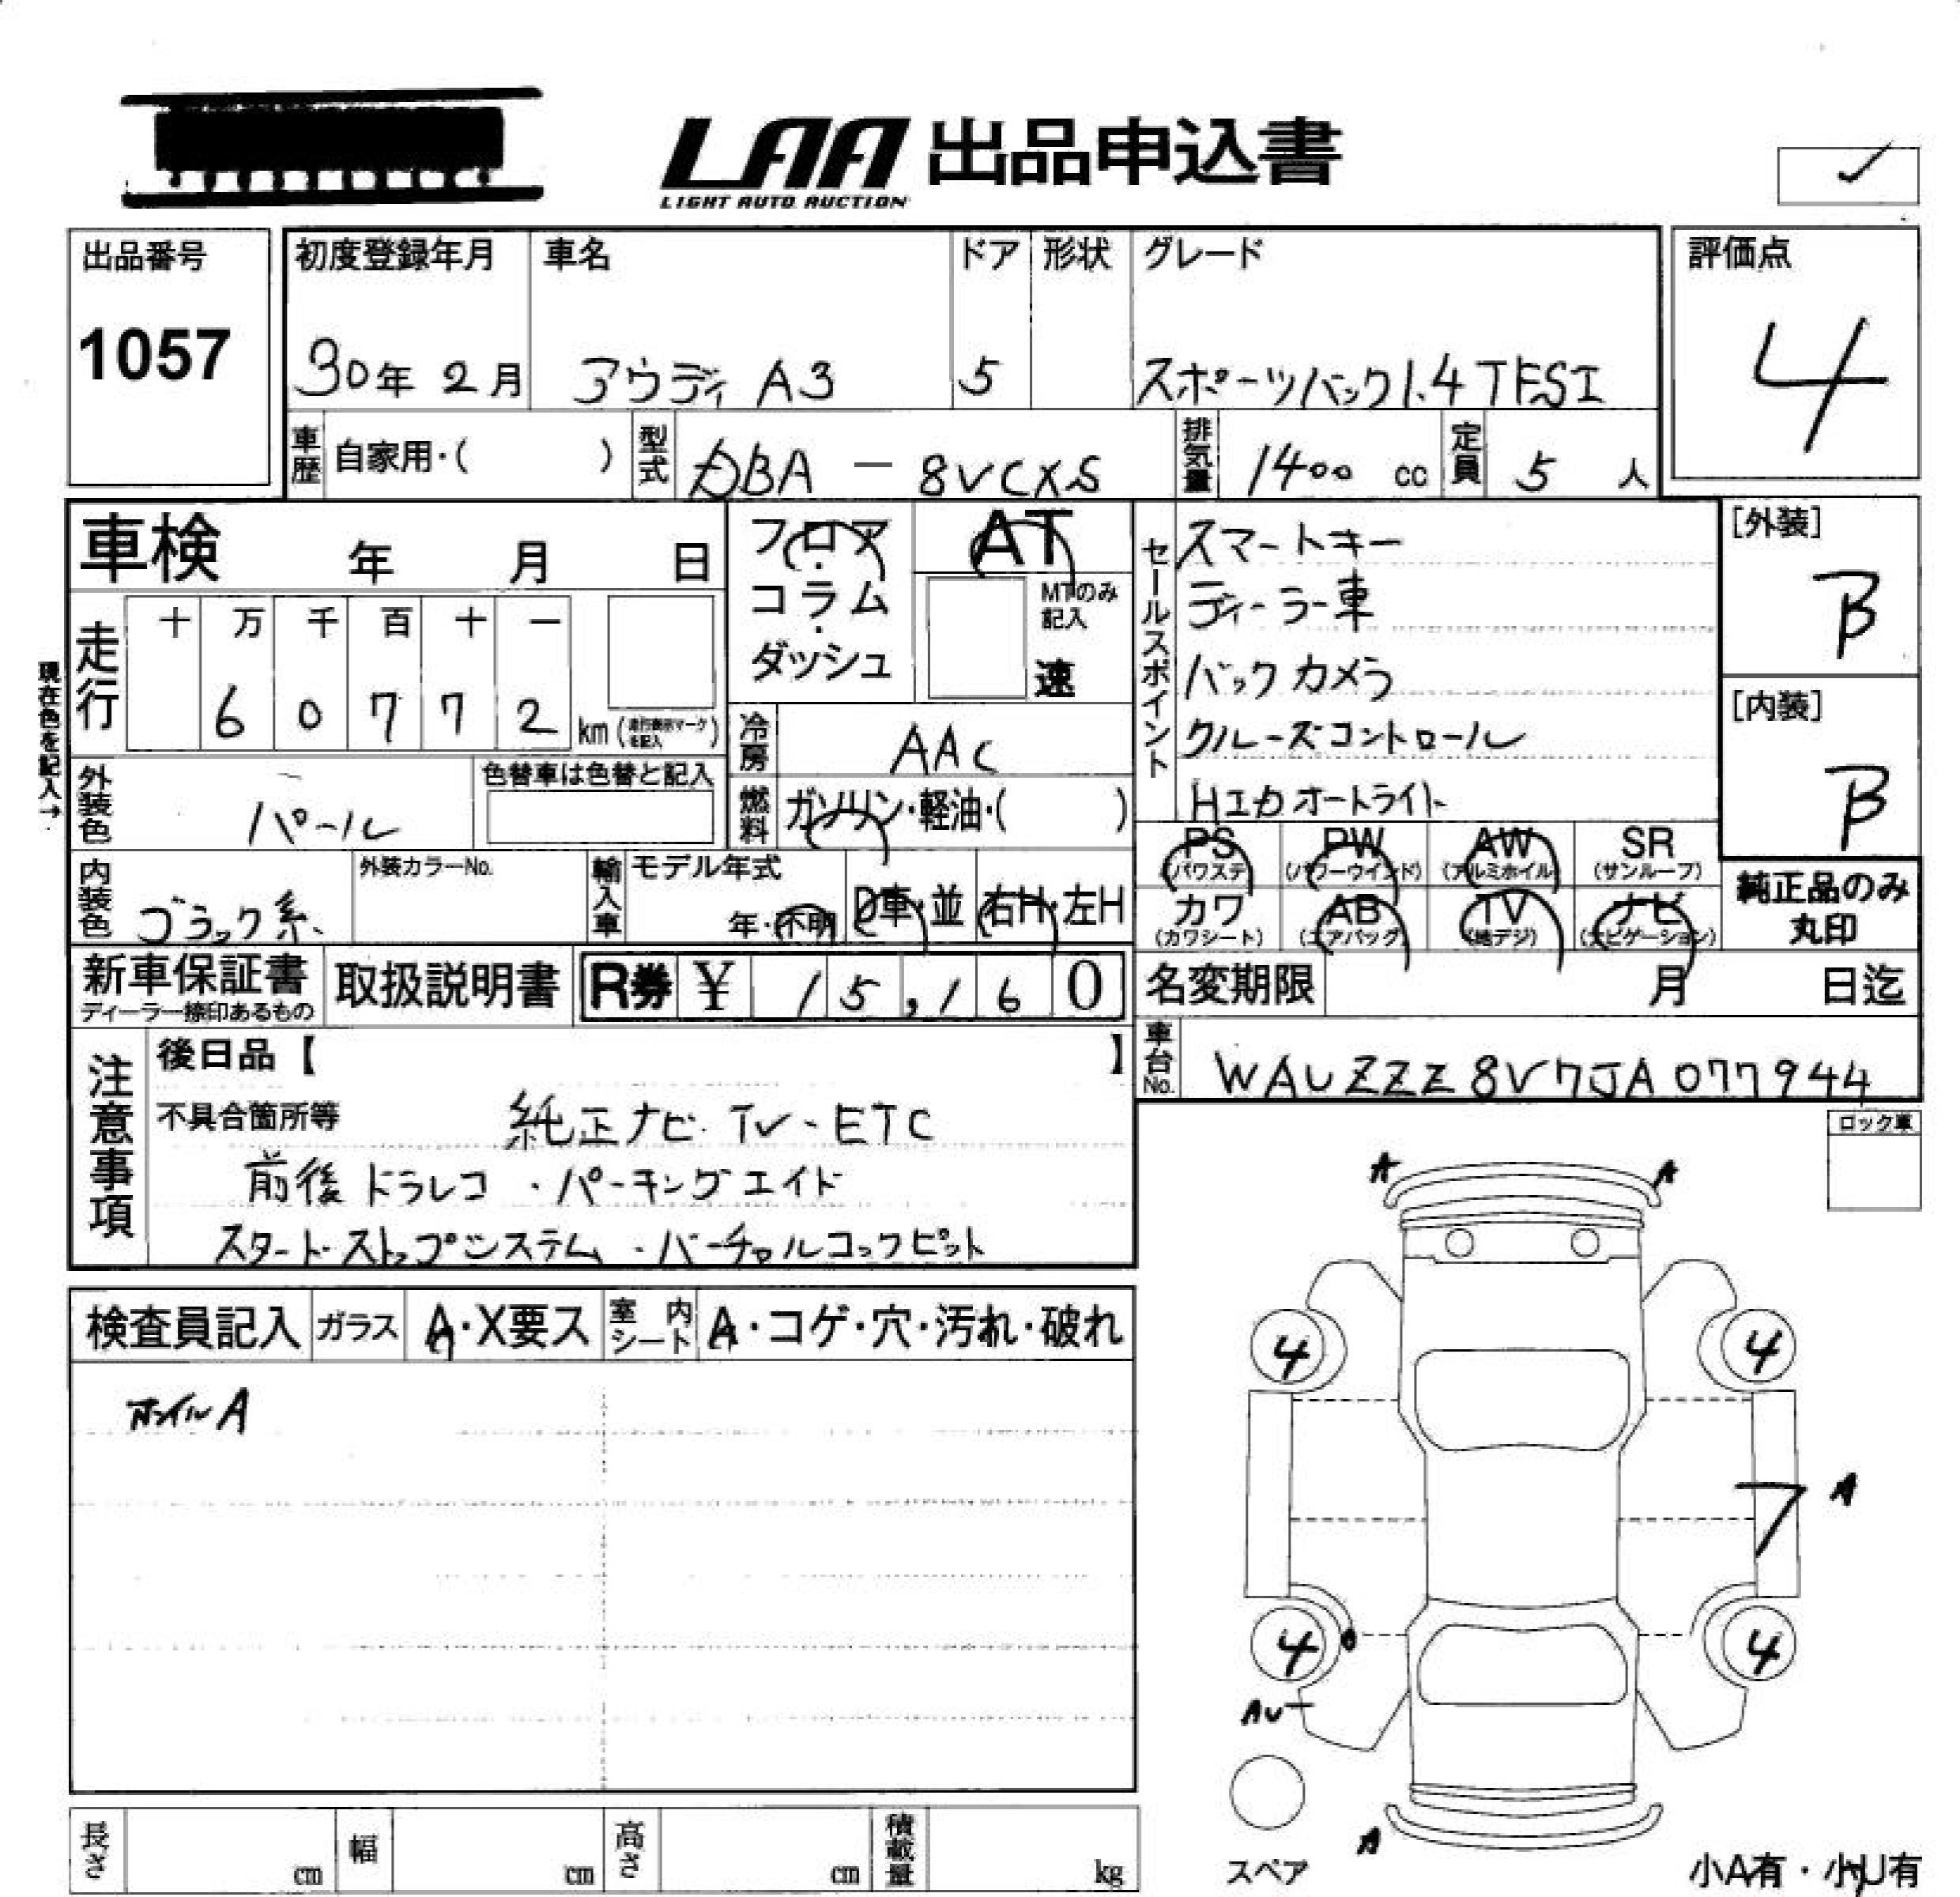 LAA 出品申込書
LIGHT AUTO AUCTION
出品番号
1057
初度登録年月
30年 2月
車名
アウディ A3
ドア
5
形状
グレード
スポーツバック1.4TFSI
評価点
4
車歴
自家用・( )
型式
DBA - 8VCXS
排気量
1400 cc
定員
5 人
車検 年 月 日
フロア・コラム・ダッシュ
AT
MTのみ記入
速
セールスポイント
スマートキー
ディーラー車
バックカメラ
クルーズコントロール
HIDオートライト
[外装]
B
[内装]
B
現在色を記入→
走行
十 万 千 百 十 一
6 0 7 7 2
km
冷房
AAC
外装色
パール
色替車は色替と記入
燃料
ガソリン・軽油・( )
PS
(パワステ)
PW
(パワーウインド)
AW
(アルミホイル)
SR
(サンルーフ)
内装色
ブラック系
外装カラーNo.
輸入車
モデル年式
年・不明
D車・並
右H・左H
カワ
(カワシート)
AB
(エアバッグ)
TV
(地デジ)
ナビ
(ナビゲーション)
純正品のみ
丸印
新車保証書
ディーラー捺印あるもの
取扱説明書
R券 ¥ 15,160
名変期限 月 日迄
車台No.
WAUZZZ8V7JA077944
注意事項
後日品【 】
不具合箇所等
純正ナビ・TV・ETC
前後ドラレコ・パーキングエイド
スタートストップシステム・バーチャルコックピット
ロック車
A A
検査員記入
ガラス
A・X要ス
室内シート
A・コゲ・穴・汚れ・破れ
ホイルA
4 4
A
4 4
AU
A
スペア
小A有・小U有
長さ cm
幅 cm
高さ cm
積載量 kg